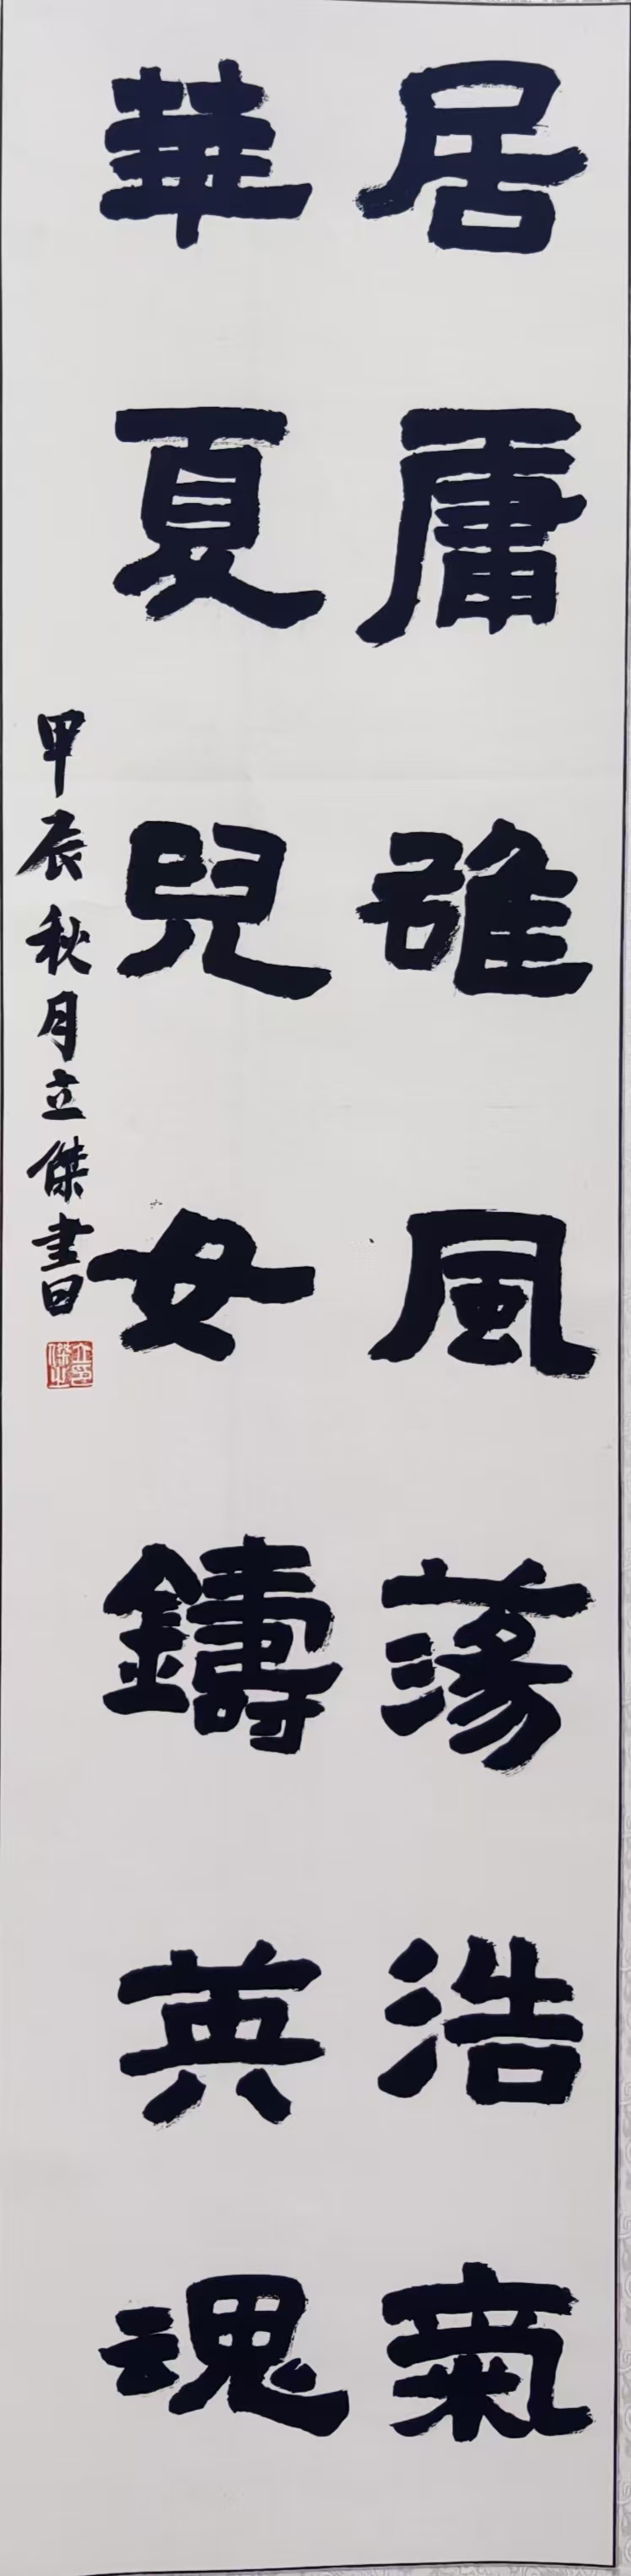 居庸雄風蕩浩氣
華夏兒女鑄英魂
甲辰秋月立傑書
立傑之印